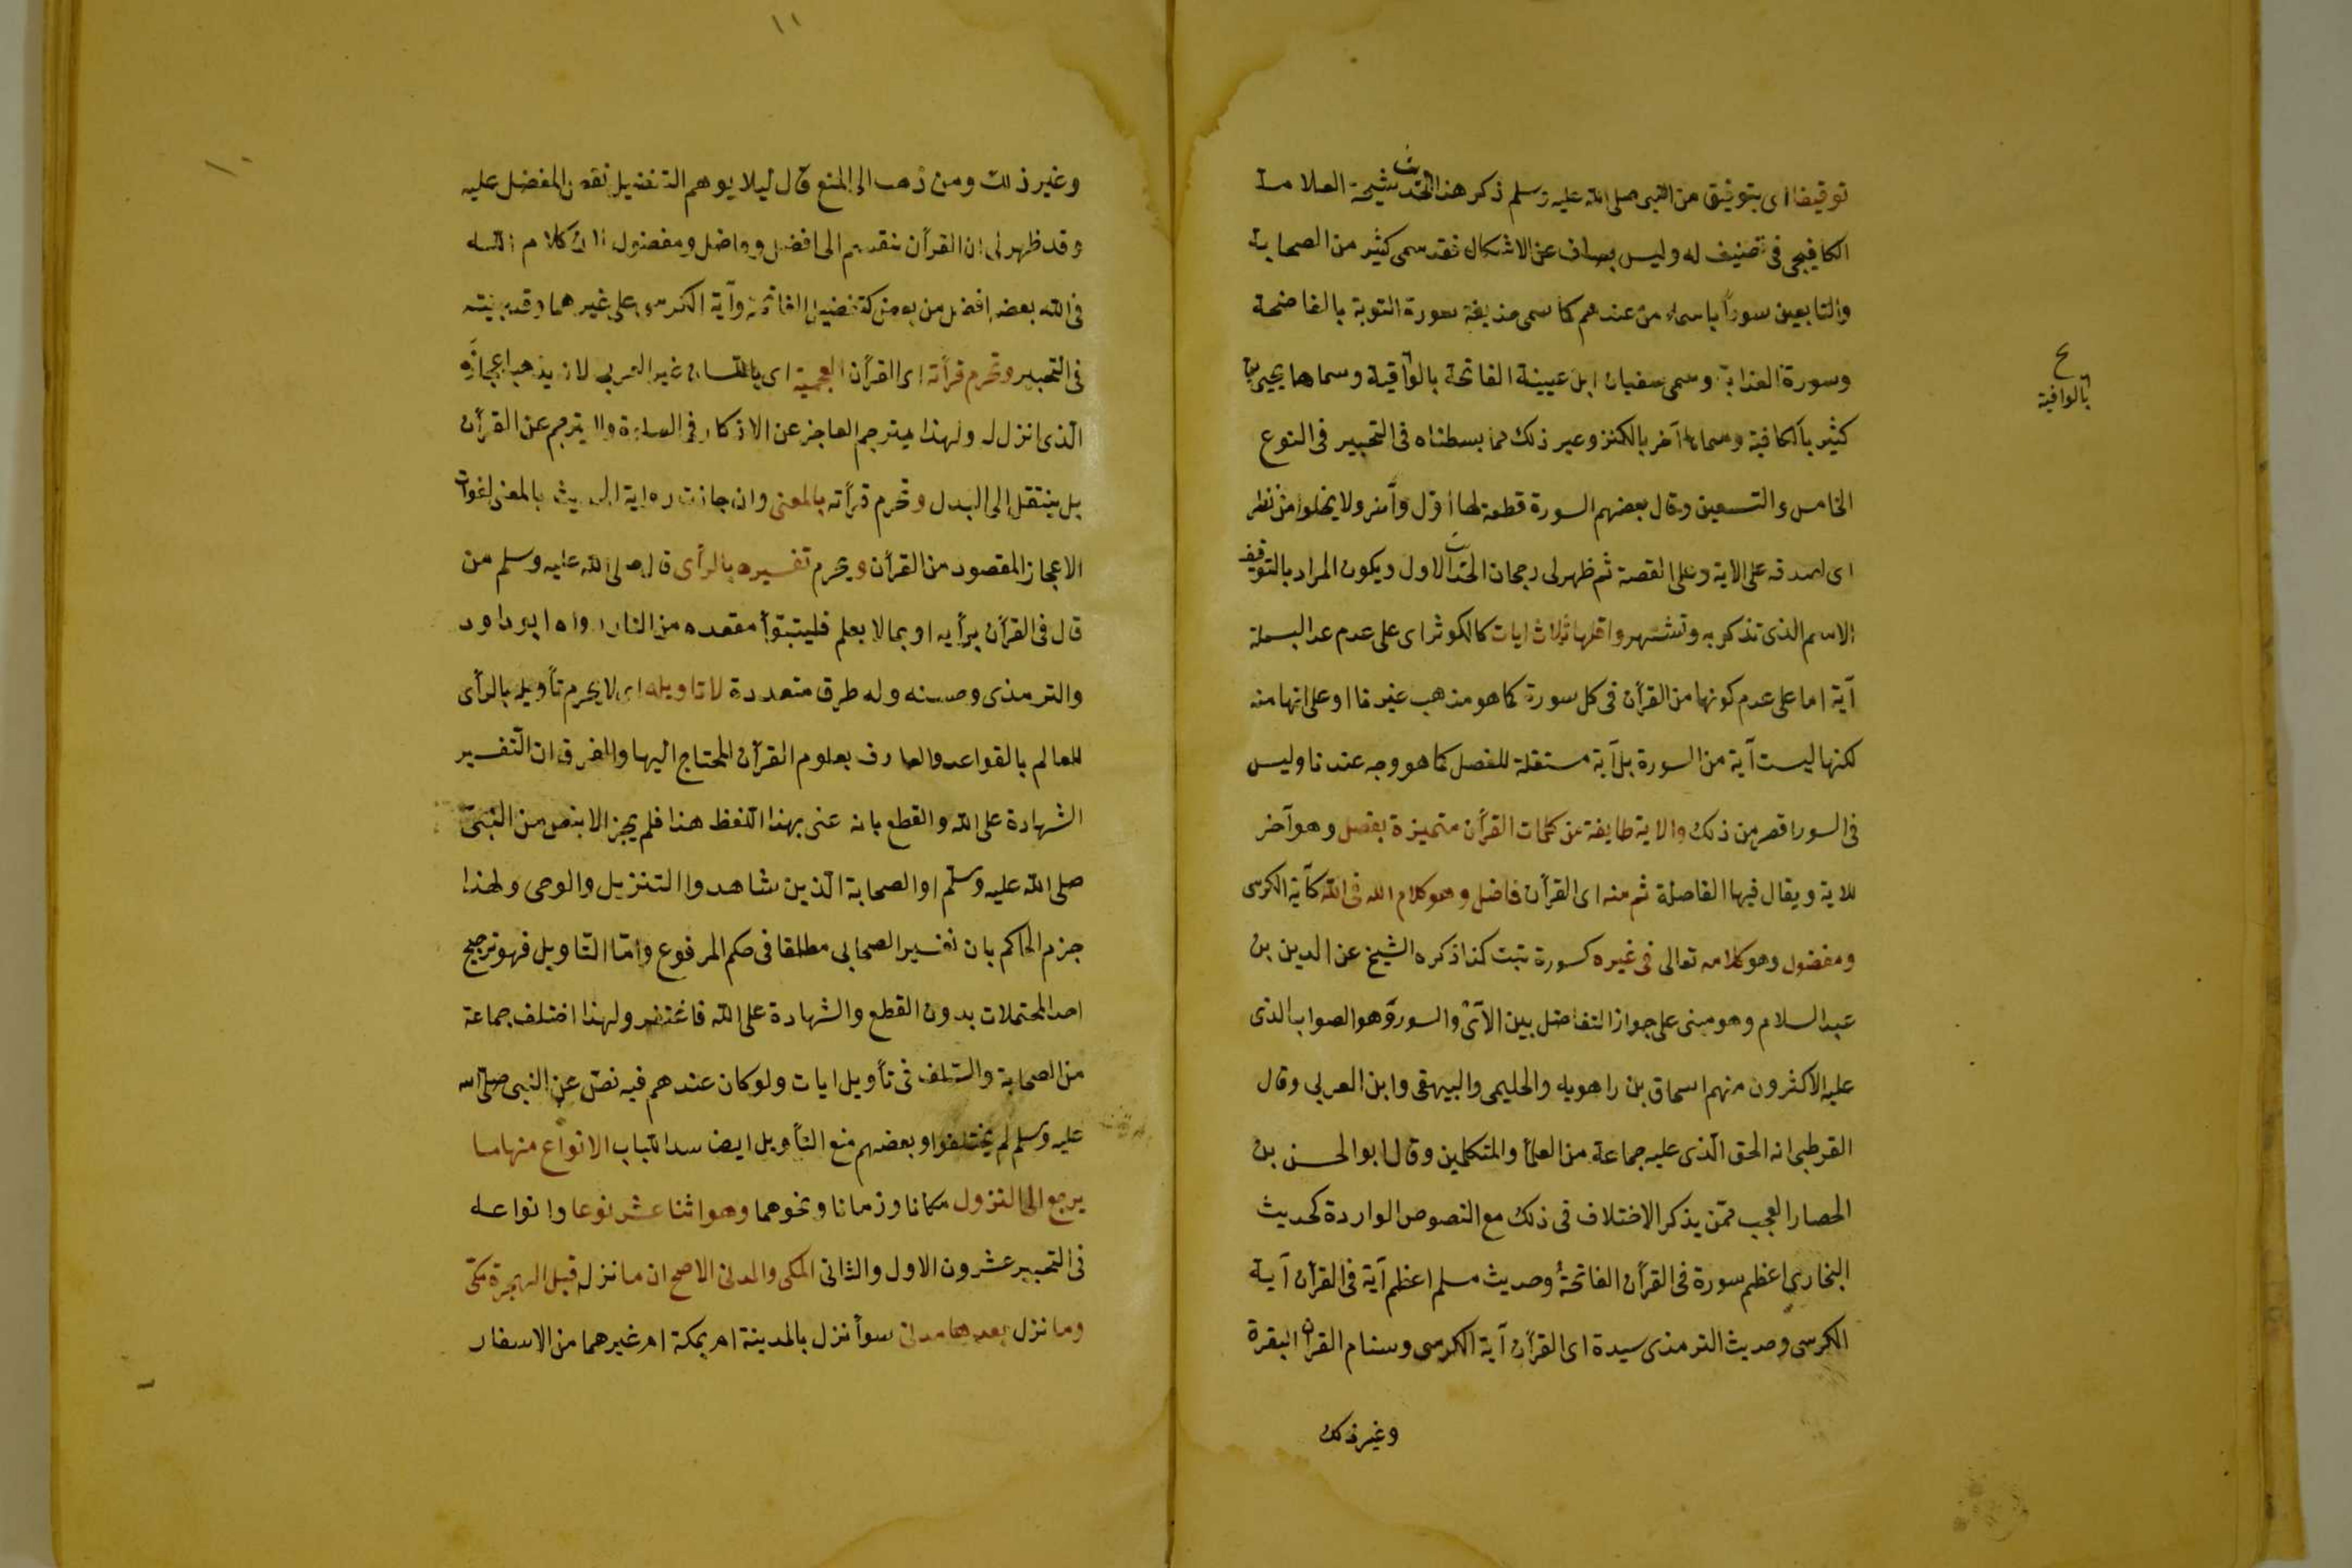 توقيفا اى بتوقيف من النبى صلى الله عليه وسلم ذكر هذا الحد شيخنا العلامة
الكافيجى فى تصنيف له وليس بصاف عن الاشكال فقد سمى كثير من الصحابة
والتابعين سوراً باسماء من عندهم كما سمى حذيفة سورة التوبة بالفاضحة
وسورة العذاب وسمى سفيان ابن عيينة الفاتحة بالواقية وسماها يحيى بن
ع
بالوافية
كثير بالكافية وسماها آخر بالكنز وغير ذلك مما بسطناه فى التحبير فى النوع
الخامس والتسعين وقال بعضهم السورة قطعة لها اوّل وآخر ولا يخلوا من نظر
اى لصدقه على الاية وعلى القصة ثم ظهر لى رجحان الحد الاول ويكون المراد بالتوقيف
الاسم الذى تذكر به وتشتهر واقلها ثلاث ايات كالكوثر اى على عدم عد البسملة
آية اما على عدم كونها من القرآن فى كل سورة كما هو مذهب غيرنا او على انها منه
لكنها ليست آية من السورة بل آية مستقلة للفصل كما هو وجه عندنا وليس
فى السور اقصر من ذلك والاية طايفة من كلمات القرآن متميزة بفصل وهو آخر
للاية ويقال فيها الفاصلة ثم منه اى القرآن فاضل وهو كلام الله فى الله كآية الكرسى
ومفضول وهو كلامه تعالى فى غيره كسورة تبت كذا ذكره الشيخ عز الدين بن
عبد السلام وهو مبنى على جواز التفاضل بين الآى والسور وهو الصواب الذى
عليه الاكثرون منهم اسحاق بن راهويه والحليمى والبيهقى وابن العربى وقال
القرطبى انه الحق الّذى عليه جماعة من العلمأ والمتكلمين وقال ابو الحسن بن
الحصار العجب ممّن يذكر الاختلاف فى ذلك مع النصوص الواردة كحديث
البخارى اعظم سورة فى القرآن الفاتحة وحديث مسلم اعظم آية فى القرآن آية
الكرسى وحديث الترمذى سيدة اى القرآن آية الكرسى وسنام القران البقرة
وغير ذلك
١١
١٠
وغير ذلك ومن ذهب الى المنع قال ليلا يوهم التفضيل نقص المفضل عليه
وقد ظهر لى ان القرآن ينقسم الى افضل وفاضل ومفضول لان كلام الله
فى الله بعضه افضل من بعض كتفضيل الفاتحة وآية الكرسى على غيرهما وقد بينته
فى التحبير وتحرم قرأته اى القرآن بالعجمية اى باللسان غير العربى لانه يذهب اعجازه
الّذى انزل له ولهذا يترجم العاجز عن الاذكار فى الصلوة ولا يترجم عن القرآن
بل ينتقل الى البدل وتحرم قرأته بالمعنى وان جازت رواية الحديث بالمعنى لفوات
الاعجاز المقصود من القرآن ويحرم تفسيره بالرأى قال صلى الله عليه وسلم من
قال فى القرآن برأيه او بما لا يعلم فليتبوّأ مقعده من النار رواه ابو داود
والترمذى وحسنه وله طرق متعددة لا تاويله اى لا يحرم تأويله بالرأى
للعالم بالقواعد والعارف بعلوم القرآن المحتاج اليها والفرق ان التّفسير
الشهادة على الله والقطع بانه عنى بهذا اللّفظ هذا فلم يجز الا بنص من النبىّ
صلى الله عليه وسلّم او الصحابة الّذين شاهدوا التنزيل والوحى ولهذا
جزم الحاكم بان تفسير الصحابى مطلقا فى حكم المرفوع وامّا التّاويل فهو ترجيح
احد المحتملات بدون القطع والشهادة على الله فاغتفر ولهذا اختلف جماعة
من الصحابة والسّلف فى تأويل ايات ولو كان عندهم فيه نصّ عن النبى صلى الله
عليه وسلم لم يختلفوا وبعضهم منع التأويل ايضا سدا للباب الانواع منها ما
يرجع الى النزول مكانا وزمانا ونحوهما وهو اثنا عشر نوعا وانواعه
فى التحبير عشرون الاول والثانى المكى والمدنى الاصح ان ما نزل قبل الهجرة مكّى
وما نزل بعدها مدنى سوأ نزل بالمدينة ام بمكة ام غيرهما من الاسفار